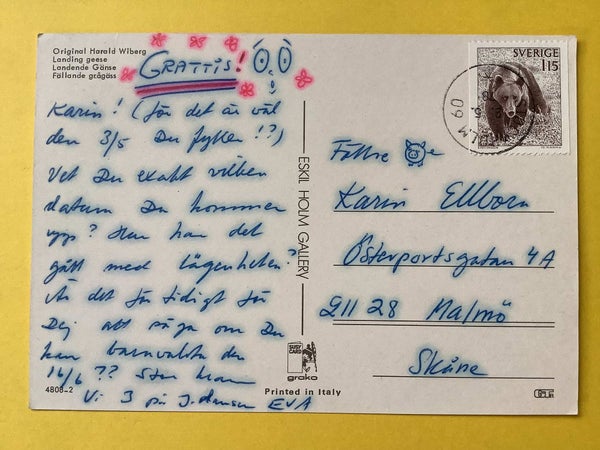 Original Harald Wiberg
Landing geese
Landende Gänse
Fällande grågäss
GRATTIS!
Karin! (för det är väl
den 3/5 Du fyller!?)
Vet Du exakt vilken
datum Du kommer
upp? Hur har det
gått med lägenheten?
Är det för tidigt för
Dej att säga om Du
kan barnvakta den
16/6 ?? Stor kram
Vi 3 på J. EVA
4808-2
ESKIL HOLM GALLERY
SUSY CARD
grako
Printed in Italy
SVERIGE
115
09
Karin Ellborn
Österportsgatan 4A
211 28 Malmö
Skåne